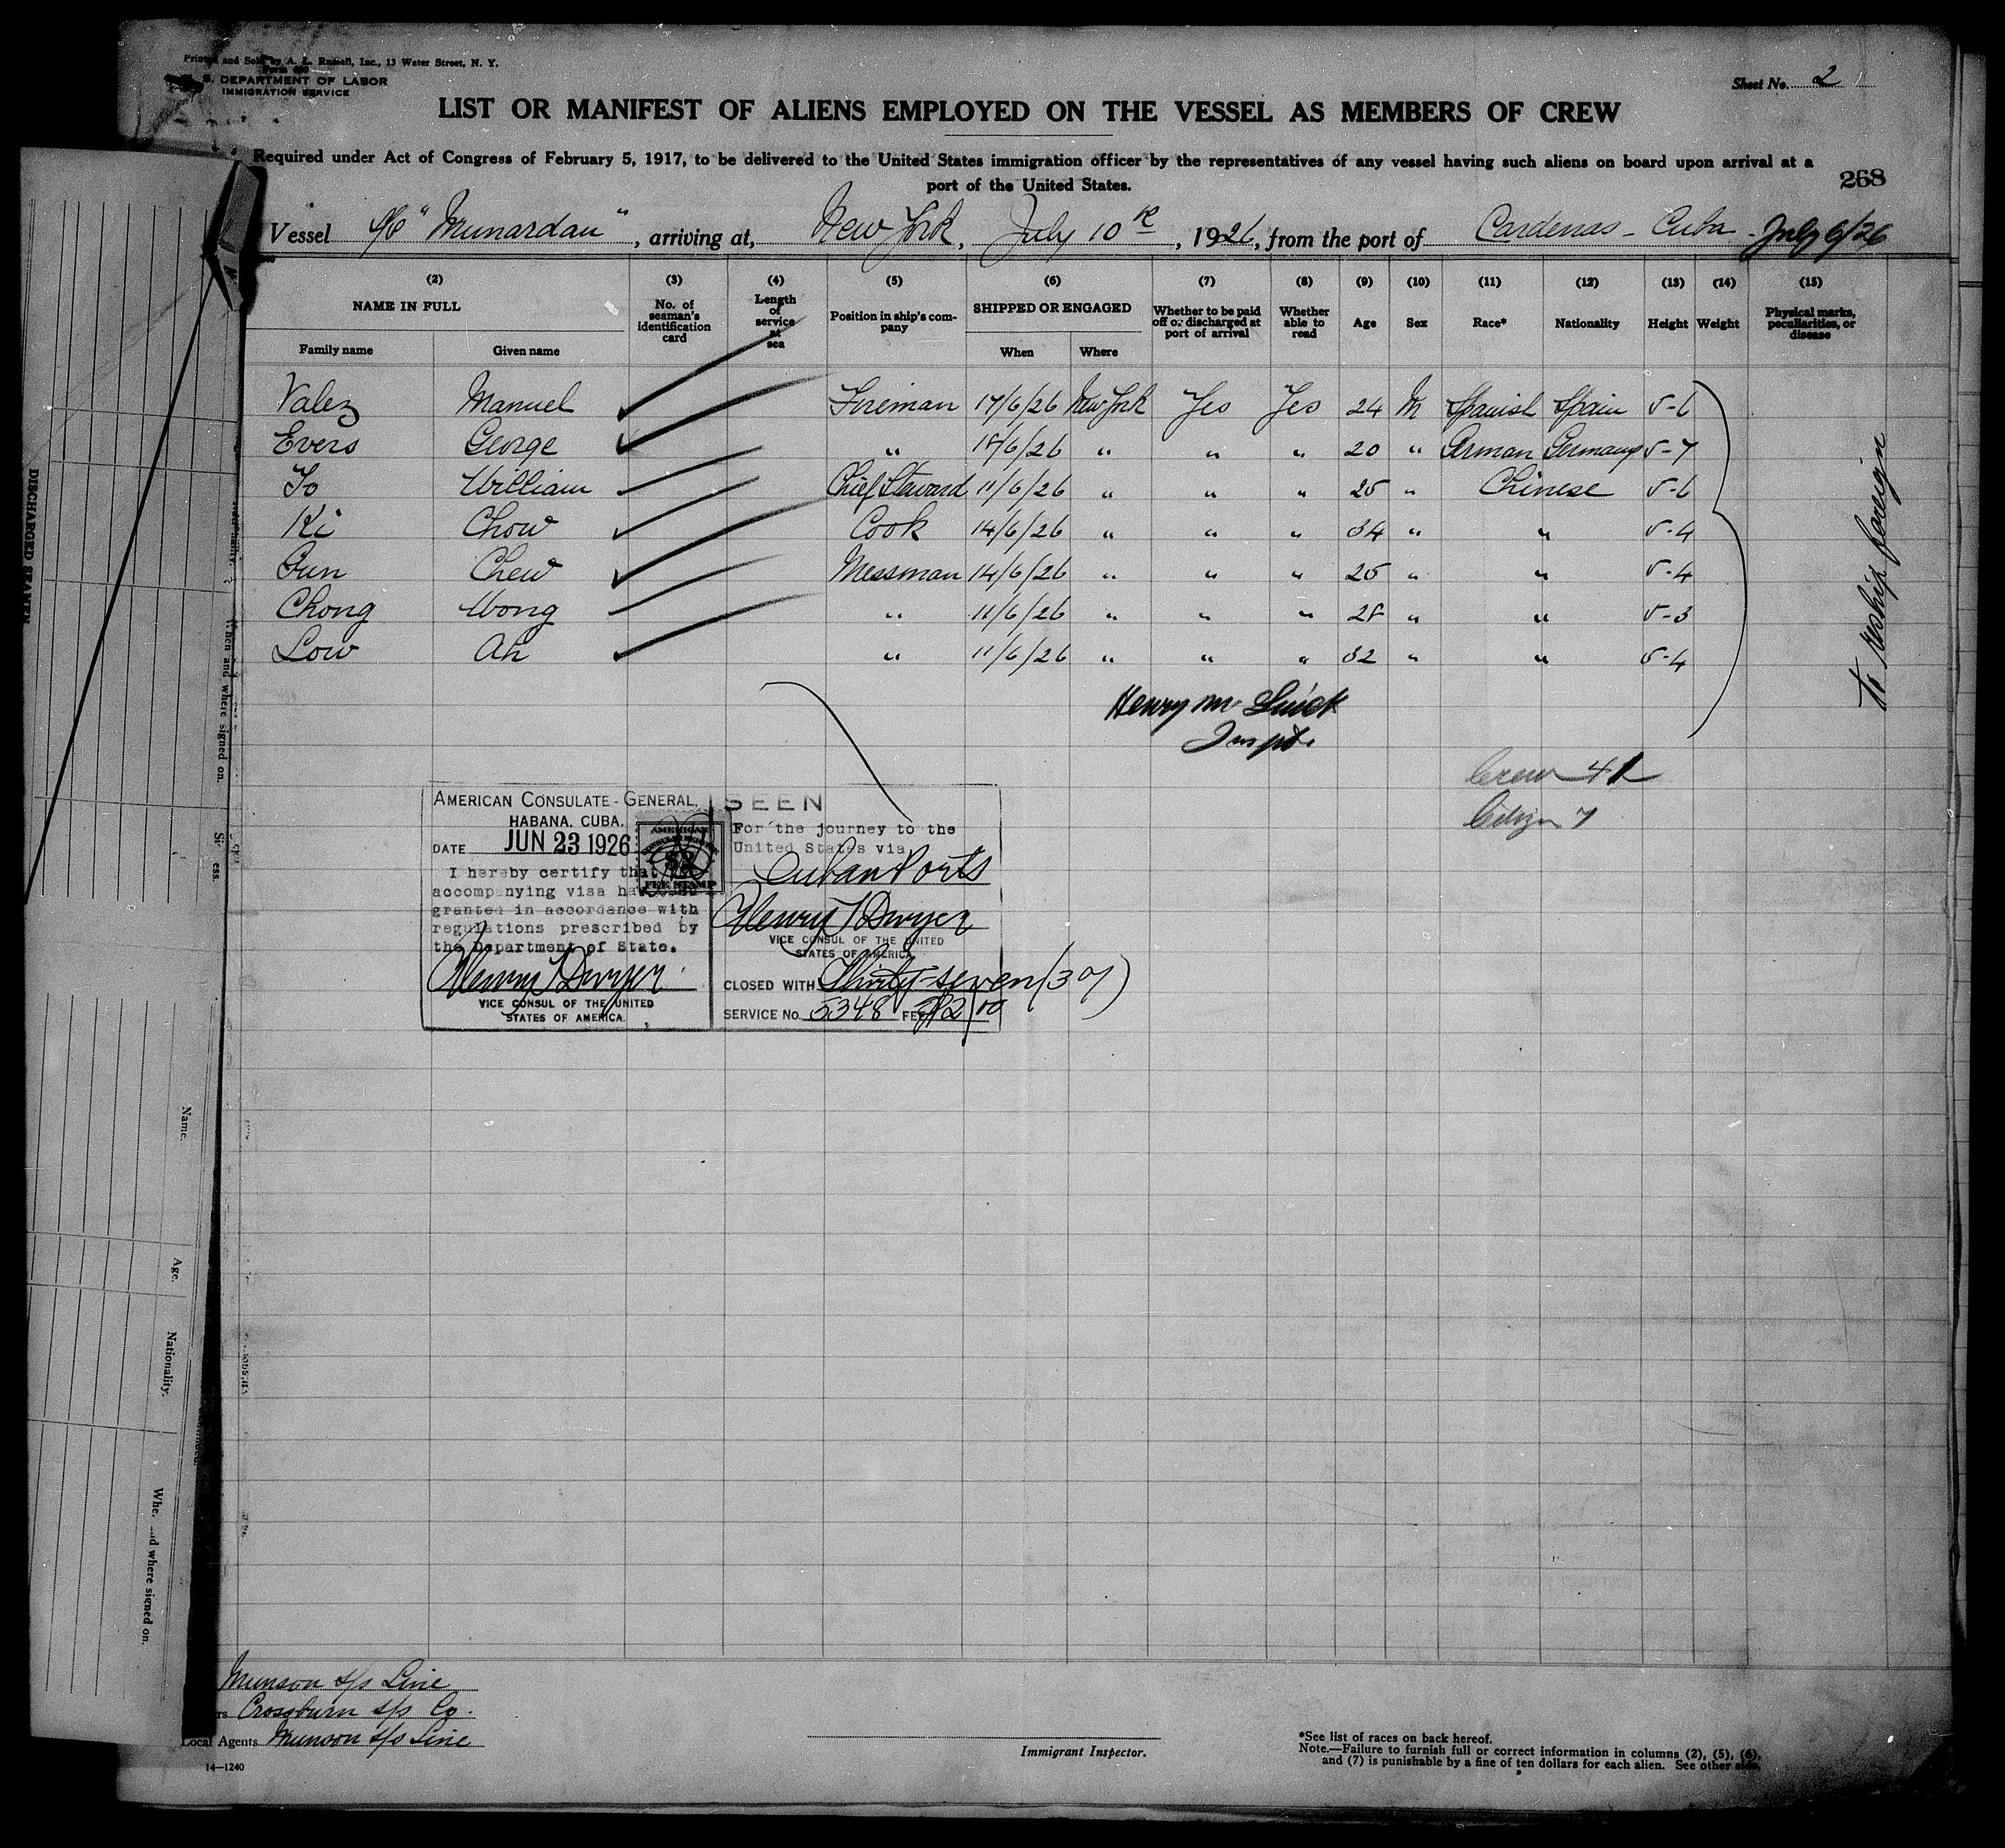 Printed and Sold by A. L. Russell, Inc., 13 Water Street, N. Y.
S. DEPARTMENT OF LABOR
IMMIGRATION SERVICE
Sheet No. 2
LIST OR MANIFEST OF ALIENS EMPLOYED ON THE VESSEL AS MEMBERS OF CREW
Required under Act of Congress of February 5, 1917, to be delivered to the United States immigration officer by the representatives of any vessel having such aliens on board upon arrival at a
port of the United States.
268
Vessel "Munardan", arriving at, New York, July 10th, 1926, from the port of Cardenas - Cuba - July 6/26
(2) (3) (4) (5) (6) (7) (8) (9) (10) (11) (12) (13) (14) (15)
NAME IN FULL
Family name Given name
No. of seaman's identification card
Length of service at sea
Position in ship's company
SHIPPED OR ENGAGED
When Where
Whether to be paid off or discharged at port of arrival
Whether able to read
Age Sex Race* Nationality Height Weight
Physical marks, peculiarities, or disease
Valez Manuel Fireman 17/6/26 New York Yes Yes 24 M Spanish Spain 5-6
Evers George " 18/6/26 " " " 20 " German Germany 5-7
Yo William Chief Steward 11/6/26 " " " 25 " Chinese 5-6
Ki Chow Cook 14/6/26 " " " 34 " " 5-4
Fun Chew Messman 14/6/26 " " " 25 " " 5-4
Chong Wong " 11/6/26 " " " 28 " " 5-3
Low Ah " 11/6/26 " " " 32 " " 5-4
to reship foreign
Henry M
Inspt.
Crew 41
Citizn 7
AMERICAN CONSULATE-GENERAL,
HABANA, CUBA.
DATE JUN 23 1926
I hereby certify that
accompanying visa has
granted in accordance with
regulations prescribed by
the Department of State.
Henry T Dwyer
VICE CONSUL OF THE UNITED
STATES OF AMERICA.
AMERICAN
FEE STAMP
SEEN
For the journey to the
United States via
Cuban Ports
Henry T Dwyer
VICE CONSUL OF THE UNITED
STATES OF AMERICA
CLOSED WITH Thirty-seven (37)
SERVICE No. 5348 FEE $2.00
DISCHARGED SEAMEN
When and where signed on.
Name.
Age.
Nationality.
Whe. and where signed on.
Munson s/s Line
rs Crossburn s/s Co.
Local Agents Munson s/s Line
14—1240
Immigrant Inspector.
*See list of races on back hereof.
Note.—Failure to furnish full or correct information in columns (2), (5), (6),
and (7) is punishable by a fine of ten dollars for each alien. See other side.